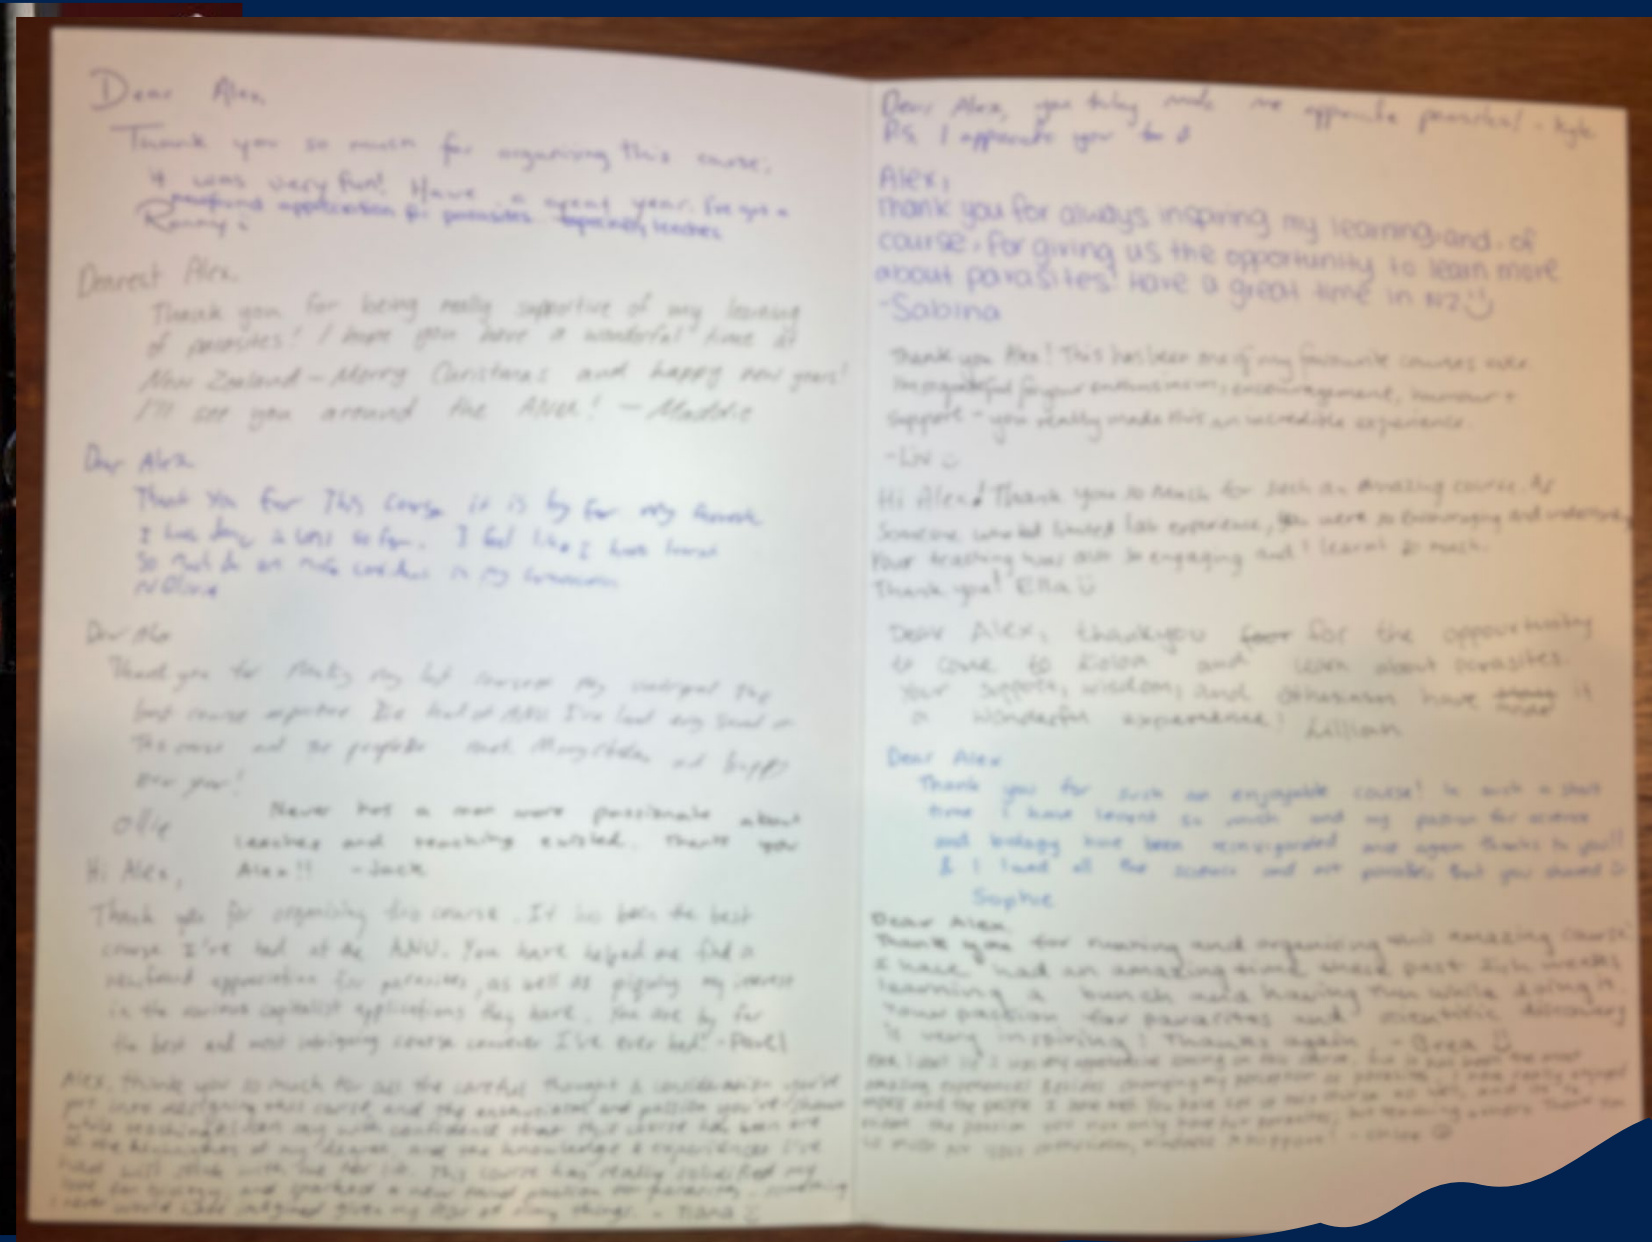 Dear Alex,
Thank you so much for organising this course.
It was very fun! Have a great year. I've got a
profound appreciation for parasites especially leeches
Ronny
Dearest Alex,
Thank you for being really supportive of my learning
of parasites! I hope you have a wonderful time at
New Zealand - Merry Christmas and happy new years!
I'll see you around the ANU! - Maddie
Dear Alex
Thank you for This course it is by far my favourite
I have done so far. I feel like I have learnt
So much
Olivia
Dear Alex
Thank you for
best course I've had at ANU I've
and happy
new year!
Ollie
Never has a man more passionate about
leeches and teaching existed. Thank you
Alex!! - Jack
Hi Alex,
Thank you for organising this course. It has been the best
course I've had at the ANU. You have helped me find a
newfound appreciation for parasites, as well as piquing my interest
in the various capitalist applications they have. You are by far
the best and most intriguing course convener I've ever had! - Pavel
Alex, thank you so much for all the careful thought & consideration you've
put into designing this course, and the enthusiasm and passion you've shown
while teaching. I can say with confidence that this course has been one
of the highlights of my degree, and the knowledge & experiences I've
had will stick with me for life. This course has really solidified my
love for biology, and sparked a new found passion for parasites, something
I never would have imagined given my fear of many things. - Tiana
Dear Alex, you truly made me appreciate parasites! - Kyle
P.S. I appreciate you too
Alex,
Thank you for always inspiring my learning, and, of
course, for giving us the opportunity to learn more
about parasites! Have a great time in NZ :)
-Sabina
Thank you Alex! This has been one of my favourite courses ever.
I'm so grateful for your enthusiasm, encouragement, humour +
support - you really made this an incredible experience.
-Liv :)
Hi Alex! Thank you so much for such an amazing course. As
someone who had limited lab experience, you were so encouraging and understanding
Your teaching was also so engaging and I learnt so much.
Thank you! Ella :)
Dear Alex, thankyou for for the opportunity
to come to and learn about parasites.
Your support, wisdom, and enthusiasm have made it
a wonderful experience! Lillian
Dear Alex
Thank you for such an enjoyable course! In such a short
time I have learnt so much and my passion for science
and biology have been reinvigorated once again thanks to you!!
& I loved all the science and art parallels that you shared :)
Sophie
Dear Alex,
Thank you for running and organising this amazing course!
I have had an amazing time these past six weeks
learning a bunch and having fun while doing it.
Your passion for parasites and scientific discovery
is very inspiring! Thanks again, - Brea :)
amazing experience! Besides changing my perception of parasites, I have really enjoyed
and the people I have met.
the passion you not only have for parasites, but teaching others. Thank you
so much for your enthusiasm, kindness & support! - Chloe